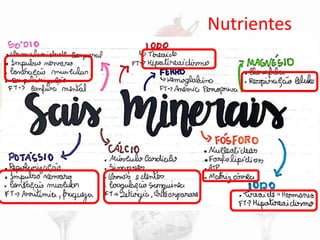 Nutrientes
SÓDIO
• Impulso nervoso
• Contração muscular
FT→ Confusão mental
IODO
• Tireoide
FT→ Hipotireoidismo
FERRO
• Hemoglobina
FT→ Anemia Ferropriva
MAGNÉSIO
• Clorofila
• Respiração Celular
Sais Minerais
POTÁSSIO
• Impulso nervoso
• Contração muscular
FT→ Arritmia, fraqueza
CÁLCIO
• Músculo Cardíaco
• Sinapses
• Ossos e dentes
• Coagulação sanguínea
FT→ Osteoporose
FÓSFORO
• Nucleotídeos
• Fosfolipídios
• ATP
• Matriz óssea
IODO
FT→ Hipotireoidismo